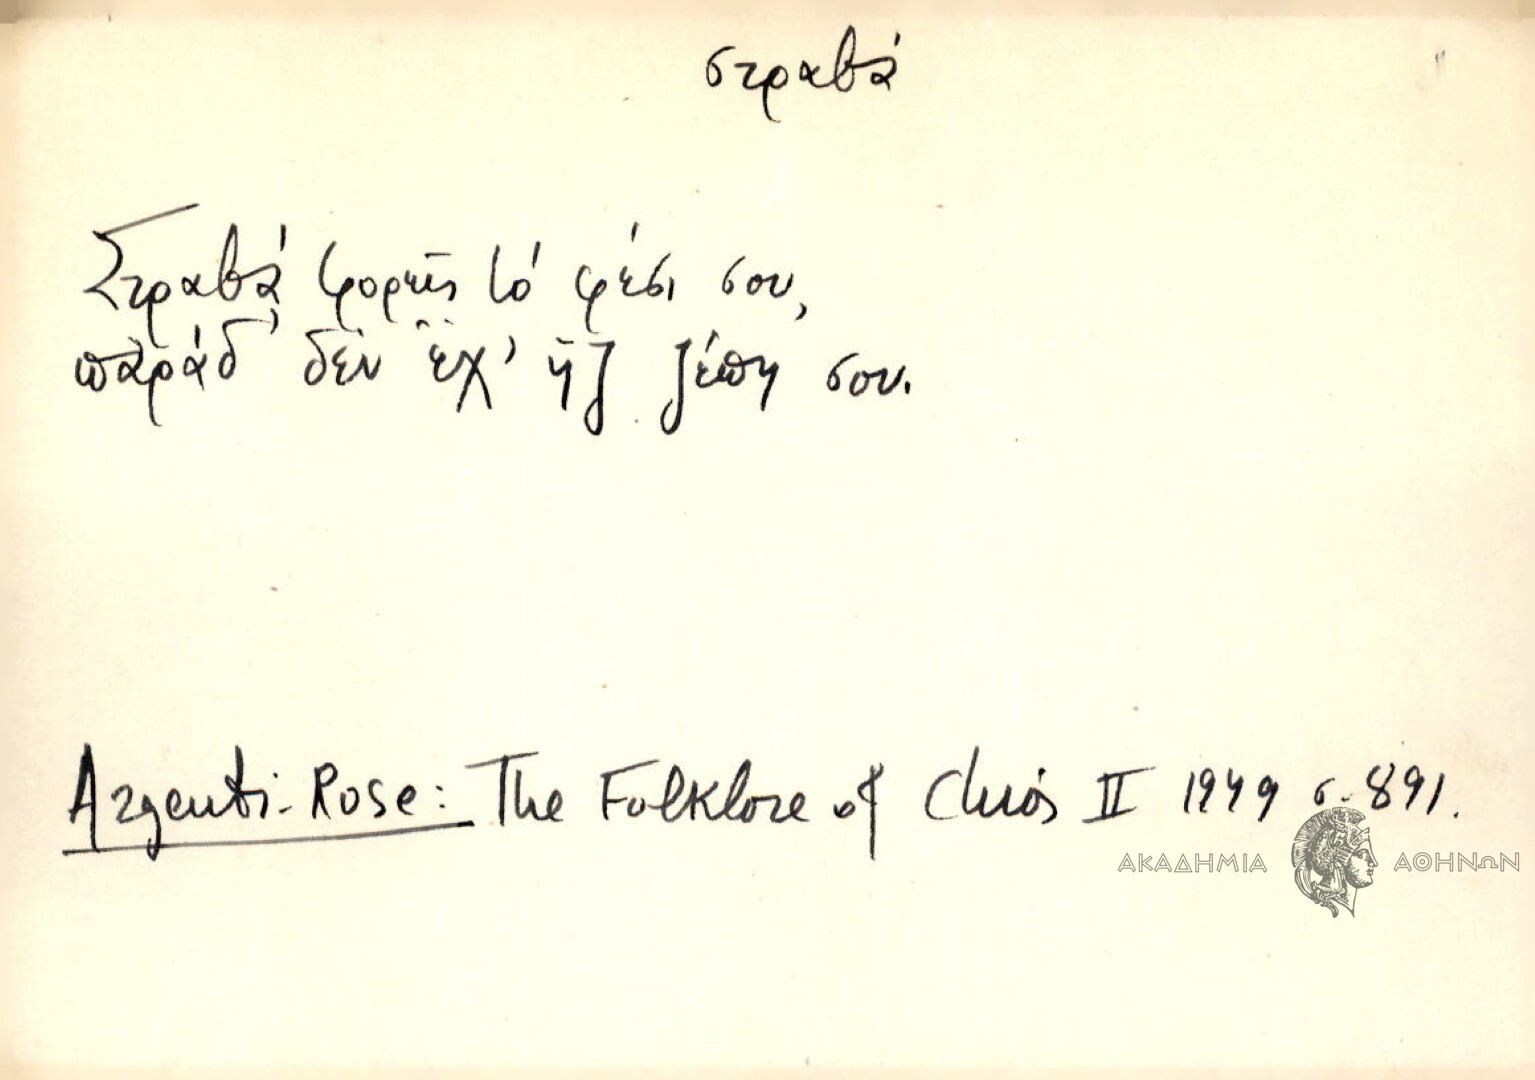 στραβά
Στραβά φορεῖς τό φέσι σου,
παράδ' δέν ἔχ' ἡ ζ ζέπη σου.
Argenti-Rose: The Folklore of Chios II 1949 σ. 891.
ΑΚΑΔΗΜΙΑ ΑΘΗΝΩΝ